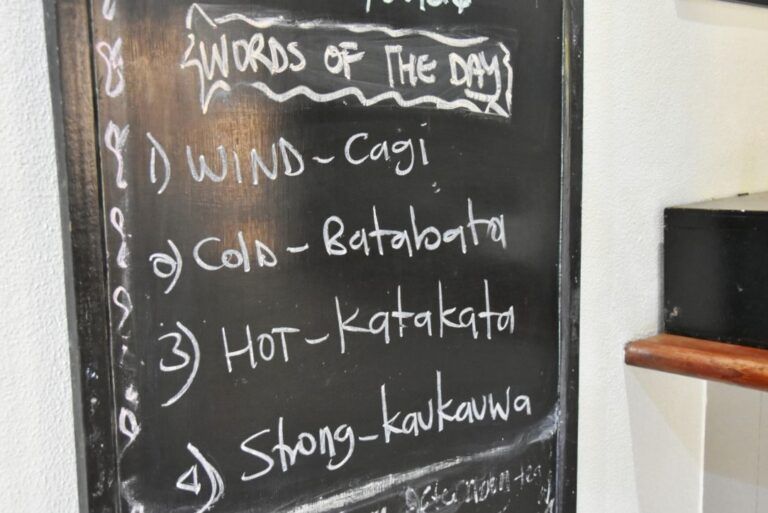 WORDS OF THE DAY
1) WIND - Cagi
2) COLD - Batabata
3) HOT - Katakata
4) Strong - kaukauwa